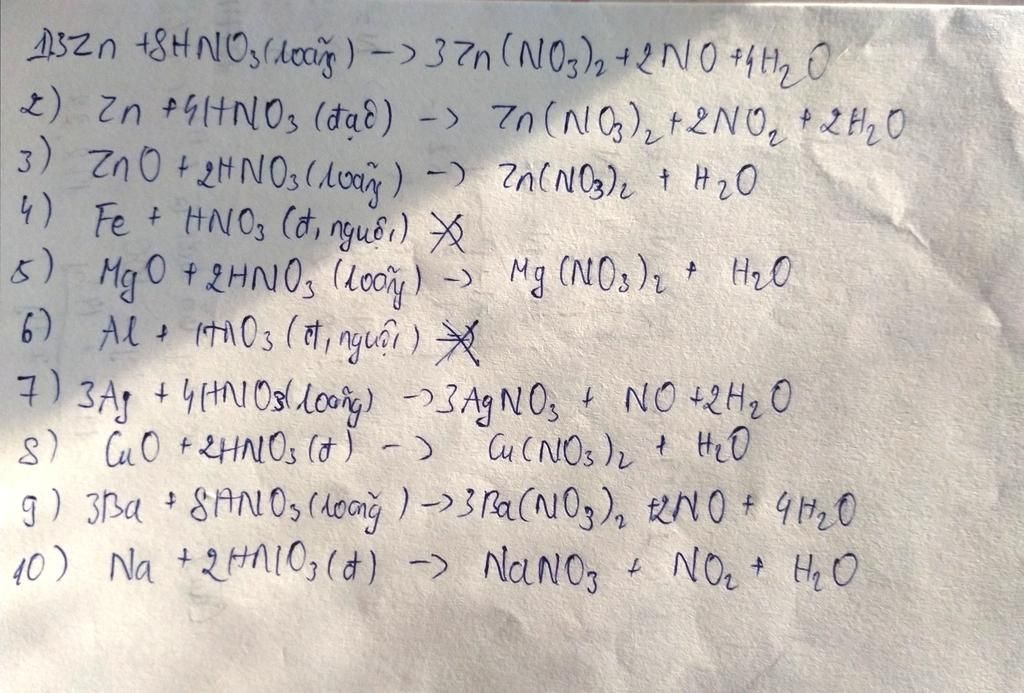 1) 3Zn + 8HNO3 (loãng) -> 3Zn(NO3)2 + 2NO + 4H2O
2) Zn + 4HNO3 (đặc) -> Zn(NO3)2 + 2NO2 + 2H2O
3) ZnO + 2HNO3 (loãng) -> Zn(NO3)2 + H2O
4) Fe + HNO3 (đ, nguội)
5) MgO + 2HNO3 (loãng) -> Mg(NO3)2 + H2O
6) Al + HNO3 (đ, nguội)
7) 3Ag + 4HNO3 (loãng) -> 3AgNO3 + NO + 2H2O
8) CuO + 2HNO3 (đ) -> Cu(NO3)2 + H2O
9) 3Ba + 8HNO3 (loãng) -> 3Ba(NO3)2 + 2NO + 4H2O
10) Na + 2HNO3 (đ) -> NaNO3 + NO2 + H2O